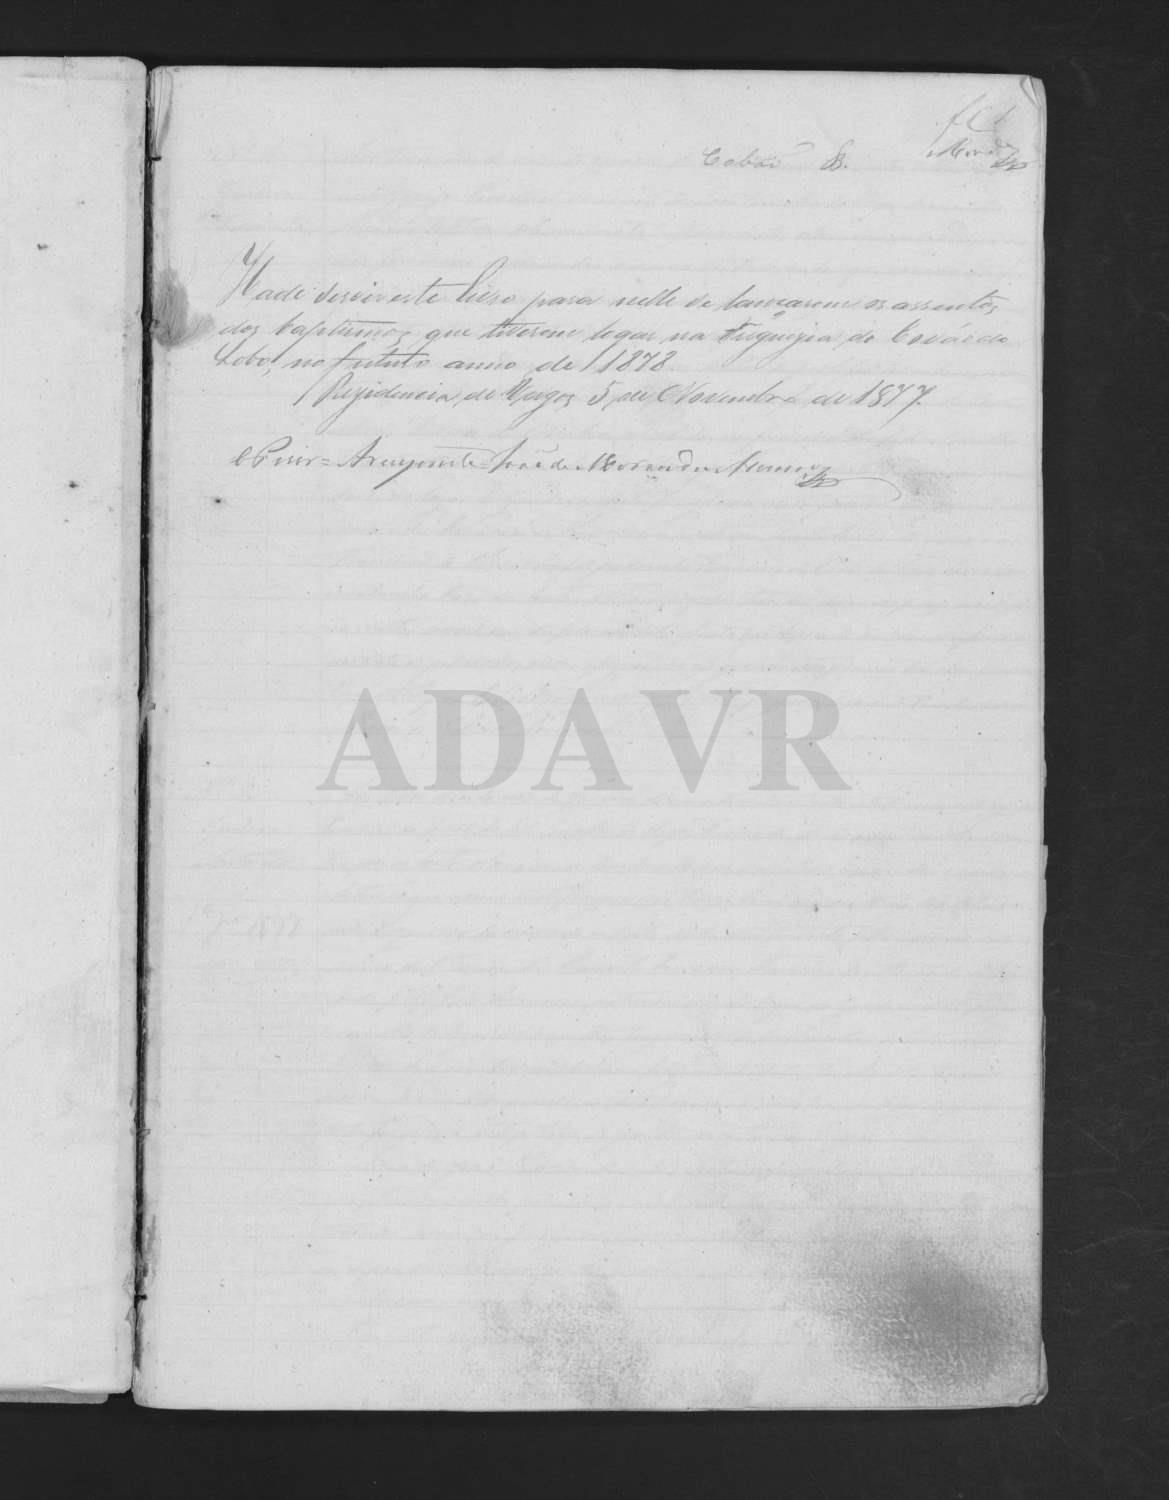 fl 1
Covão B.
Hade servir este livro para nelle se lançarem os assentos
dos baptismos, que tiverem logar na freguezia de Covão do
Lobo, no futuro anno de 1878.
Rezidencia de Vagos 5 de Novembro de 1877.
O Prior = Arcypreste = José de
ADAVR